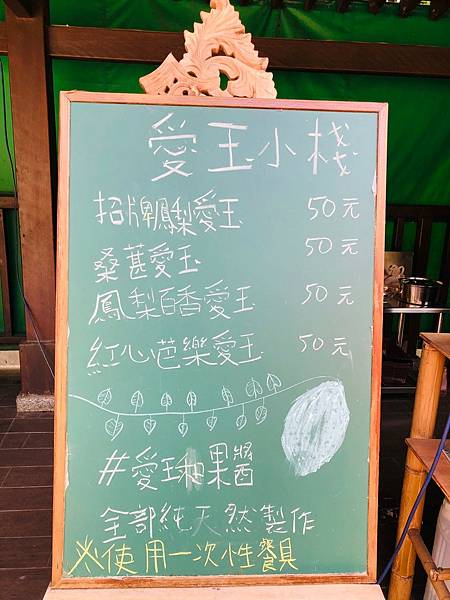 愛玉小棧
招牌鳳梨愛玉 50元
桑葚愛玉 50元
鳳梨百香愛玉 50元
紅心芭樂愛玉 50元
#愛玉和果醬
全部純天然製作
※使用一次性餐具